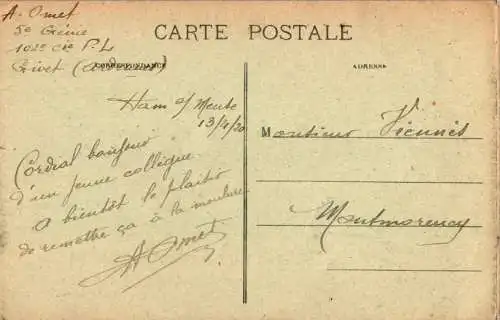 A. Omet
5e Génie
102e Cie P.L
Givet (Ardennes)
CARTE POSTALE
CORRESPONDANCE
ADRESSE
Ham s/ Meuse
13/4/20
Cordial bonjour
d'un jeune collègue
a bientôt le plaisir
de remettre ça à la moulure
A Omet
Monsieur Viennes
Montmorency